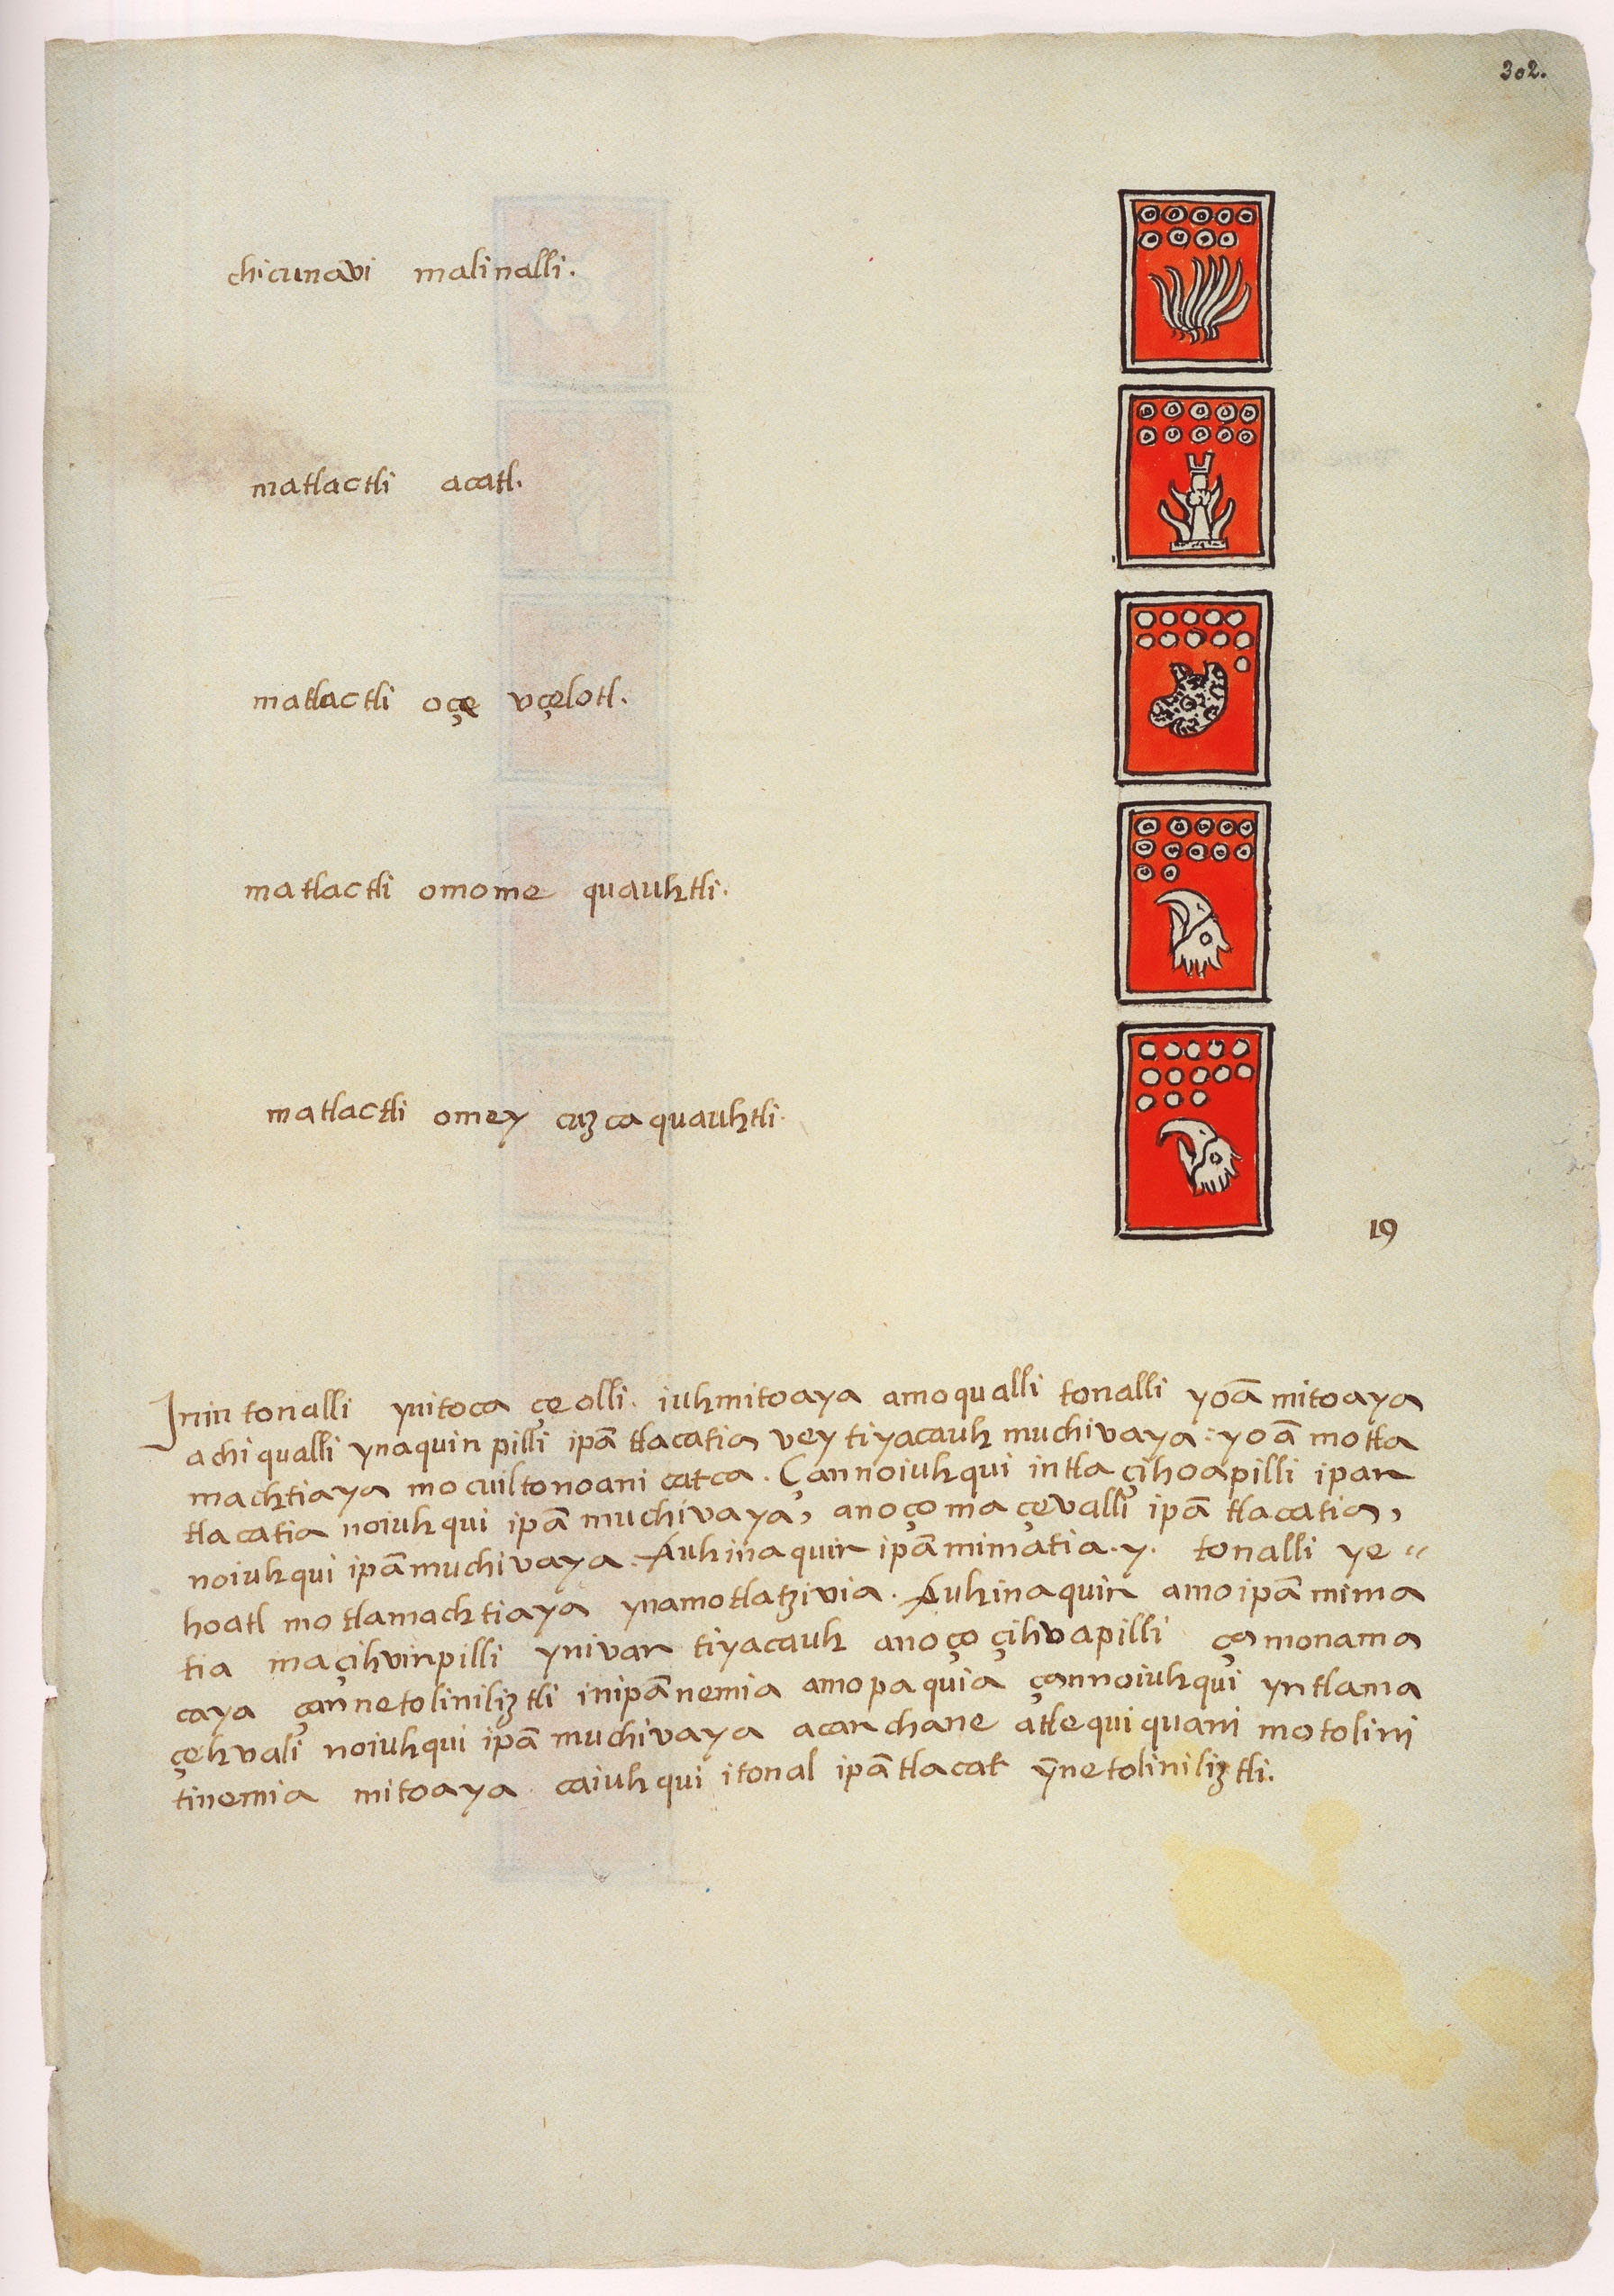 302.
chicunavi malinalli.
matlactli acatl.
matlactli oçe vçelotl.
matlactli omome quauhtli.
matlactli omey cuzcaquauhtli.
19
Inin tonalli ynitoca çe olli. iuhmitoaya amoqualli tonalli yoã mitoaya
achi qualli ynaquin pilli ipã tlacatia vey tiyacauh muchivaya: yoã motla
machtiaya mocuiltonoani catca. Çannoiuhqui intla çihoapilli ipan
tlacatia noiuhqui ipã muchivaya, anoço maçevalli ipã tlacatia,
noiuhqui ipã muchivaya. Auhinaquin ipã mimatia. y. tonalli ye=
hoatl motlamachtiaya ynamotlatzivia. Auhinaquin amoipã mima
tia maçihvinpilli ynivan tiyacauh anoço çihvapilli ça monama
caya çannetoliniliztli inipã nemia amo paquia çannoiuhqui yntlama
çehvali noiuhqui ipã muchivaya acanchane atlequiquani motolini
tinemia mitoaya caiuhqui itonal ipã tlacat ỹnetoliniliztli.